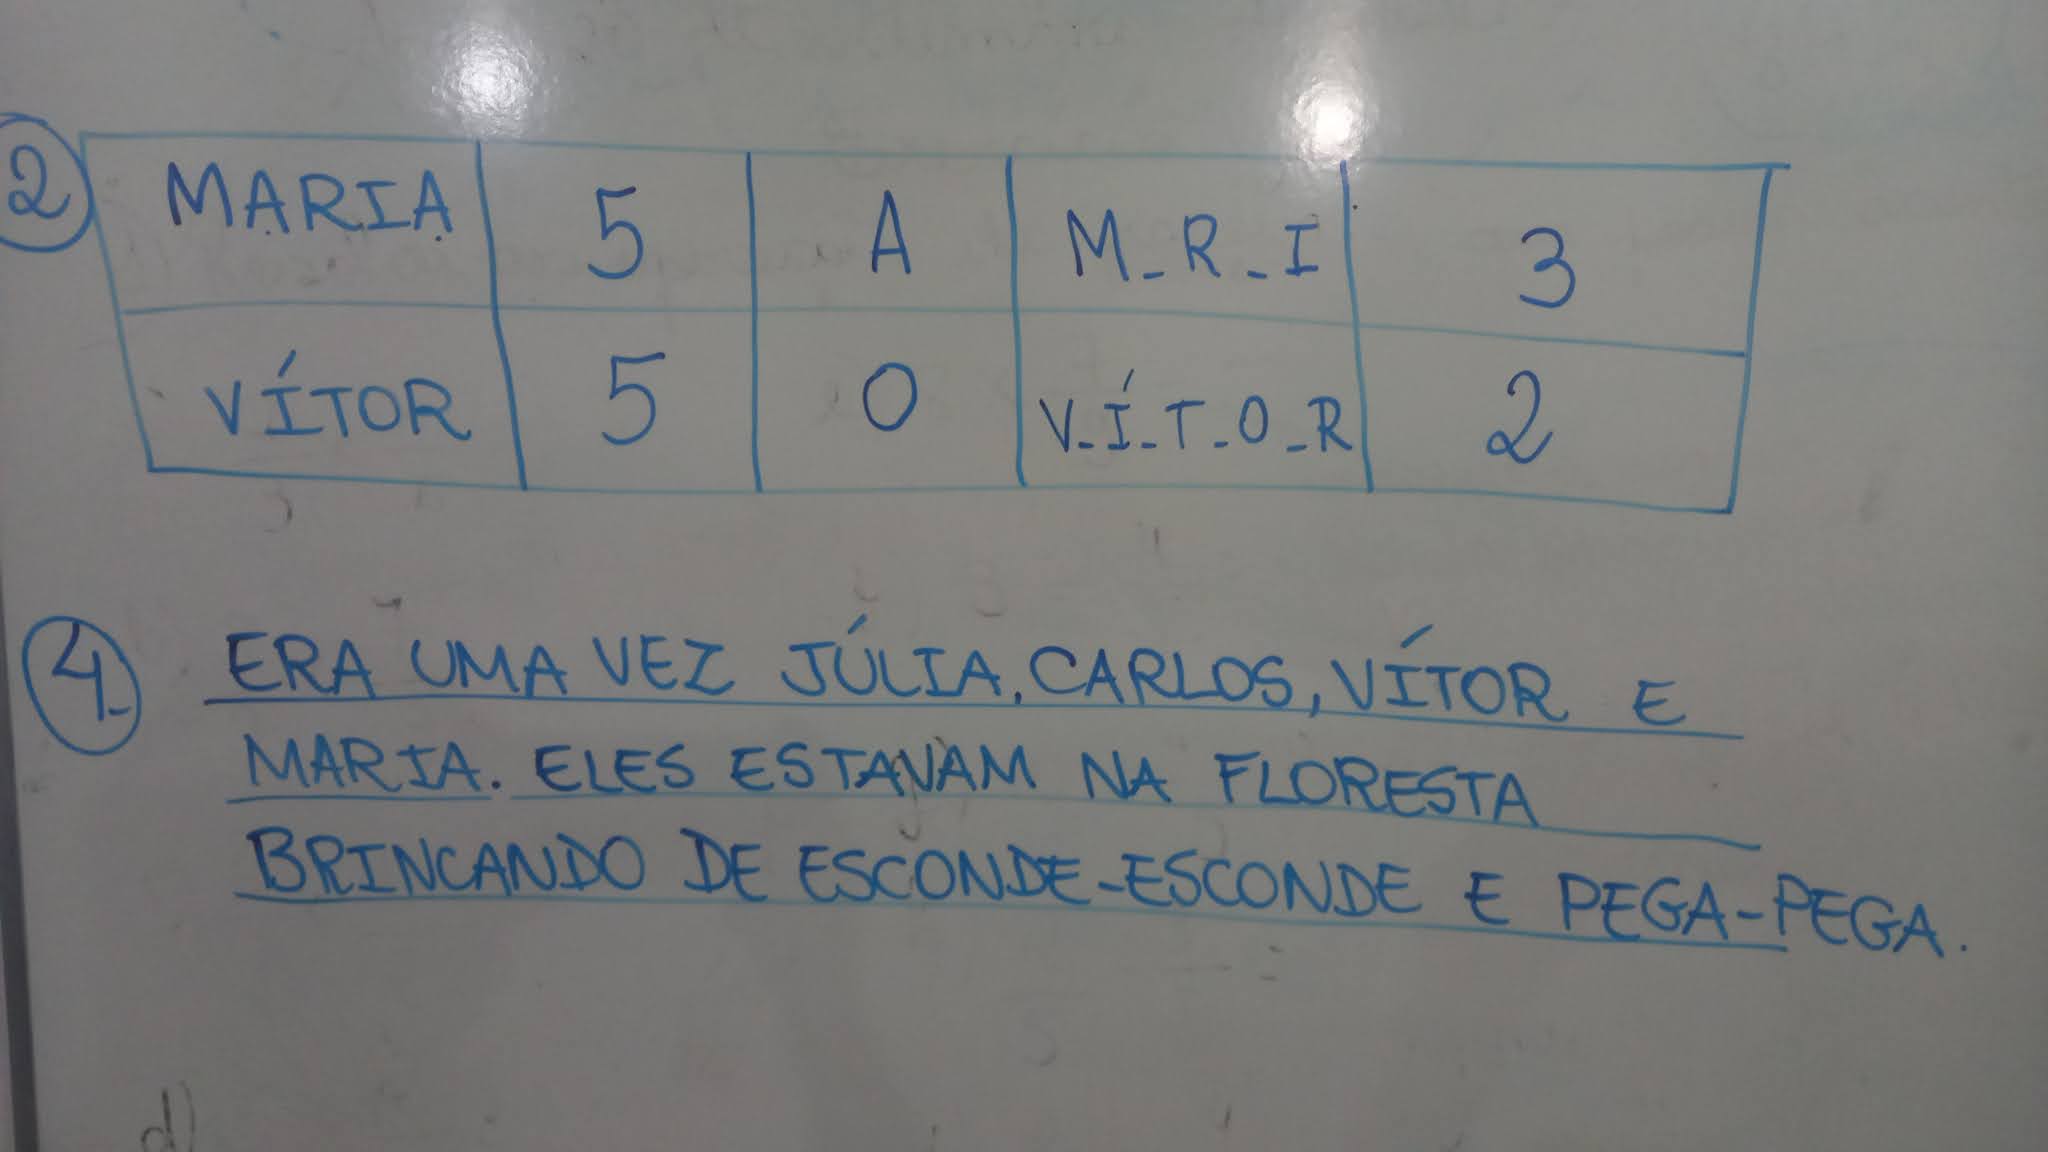 2
MARIA 5 A M-R-I 3
VÍTOR 5 O V-Í-T-O-R 2
4 ERA UMA VEZ JÚLIA, CARLOS, VÍTOR E
MARIA. ELES ESTAVAM NA FLORESTA
BRINCANDO DE ESCONDE-ESCONDE E PEGA-PEGA.
d)